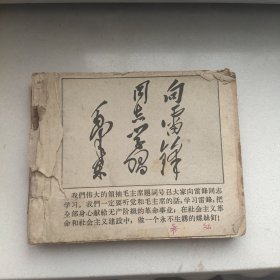 向雷锋
同志学习
毛泽东
我們伟大的領袖毛主席題詞号召大家向雷鋒同志
学习。我們一定要听党和毛主席的話,学习雷鋒,把
全部身心献給无产阶級的革命事业;在社会主义革
命和社会主义建設中,做一个永不生銹的螺絲釘!